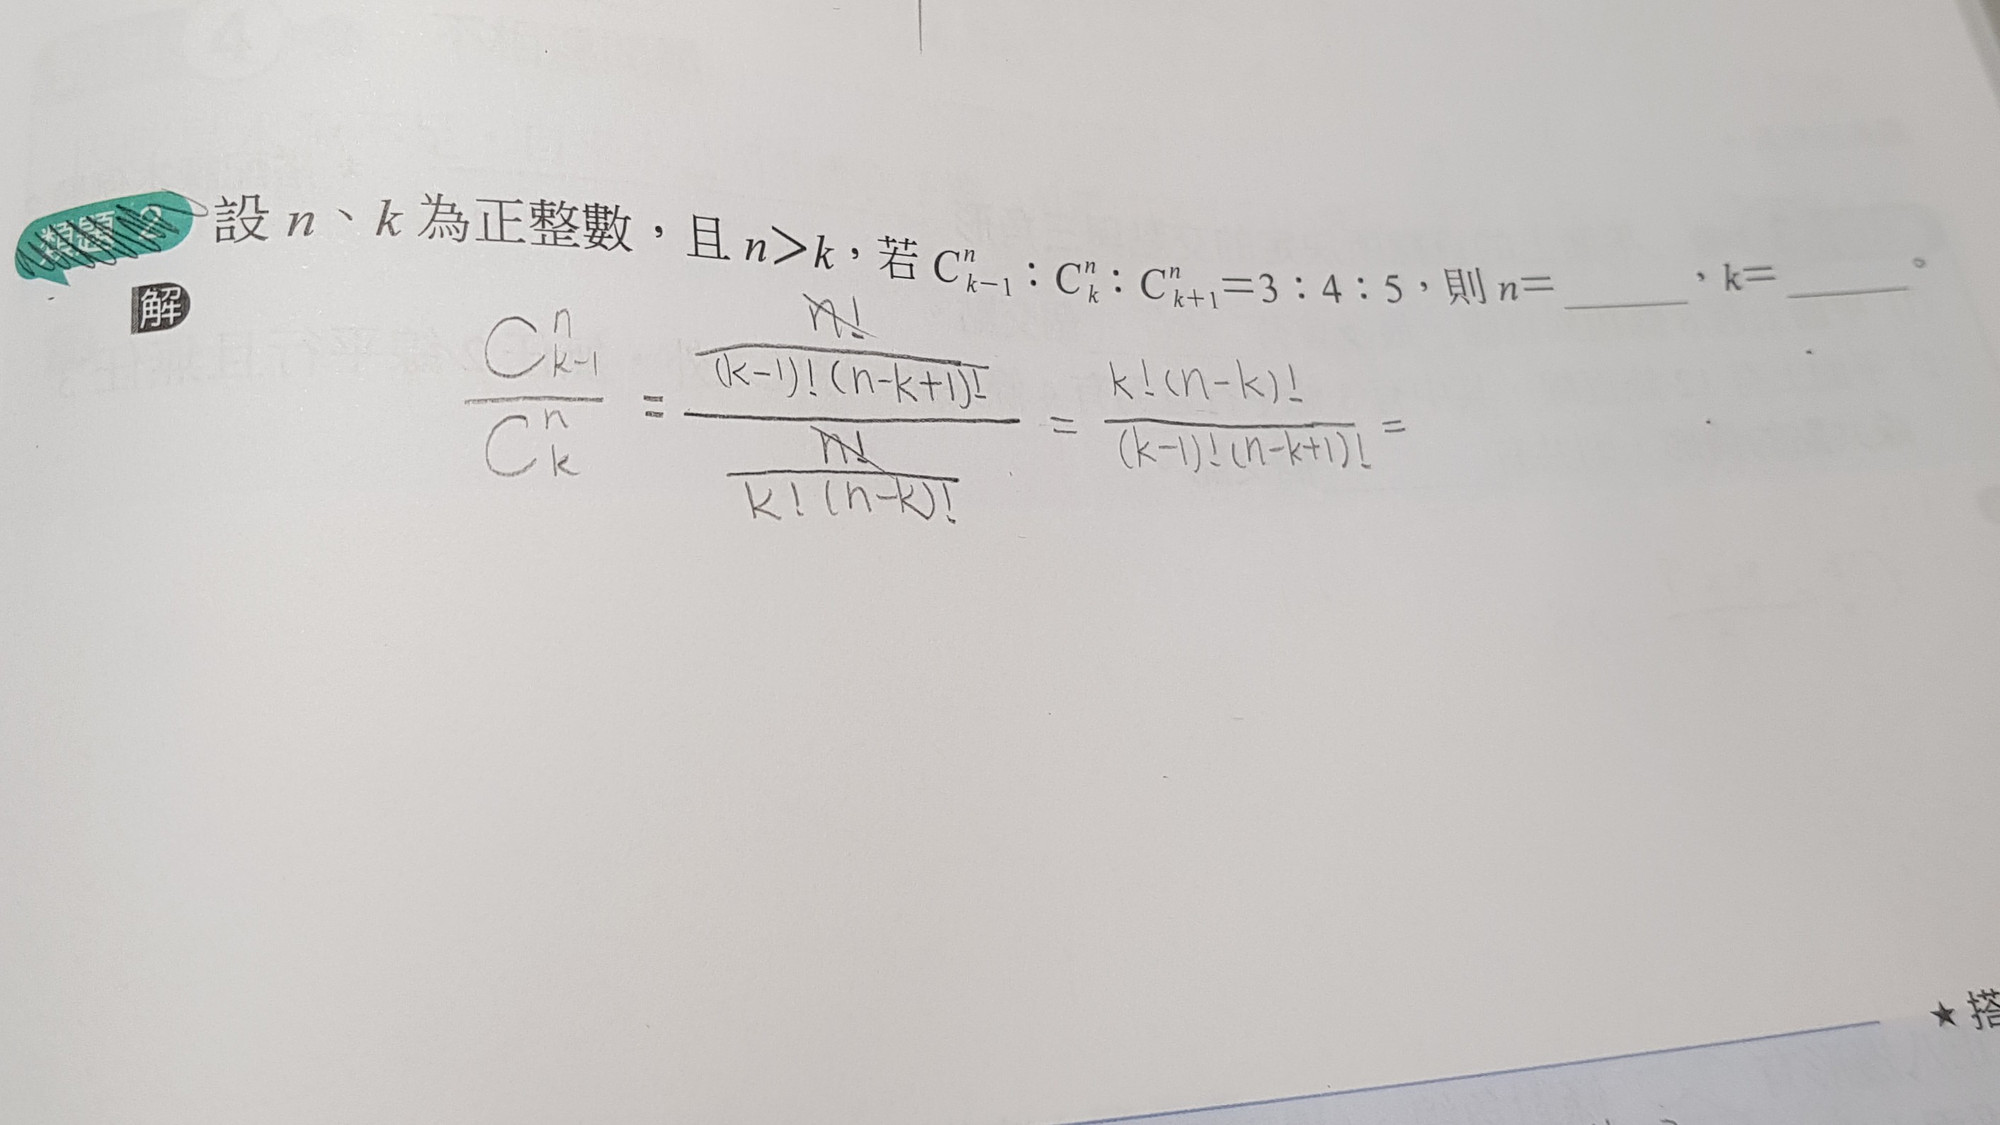 類題 2 設 n、k 為正整數，且 n＞k，若 C^n_{k−1}：C^n_k：C^n_{k+1}＝3：4：5，則 n＝______，k＝______。
解
\frac{C^n_{k-1}}{C^n_k} = \frac{\frac{n!}{(k-1)!(n-k+1)!}}{\frac{n!}{k!(n-k)!}} = \frac{k!(n-k)!}{(k-1)!(n-k+1)!} =
★搭